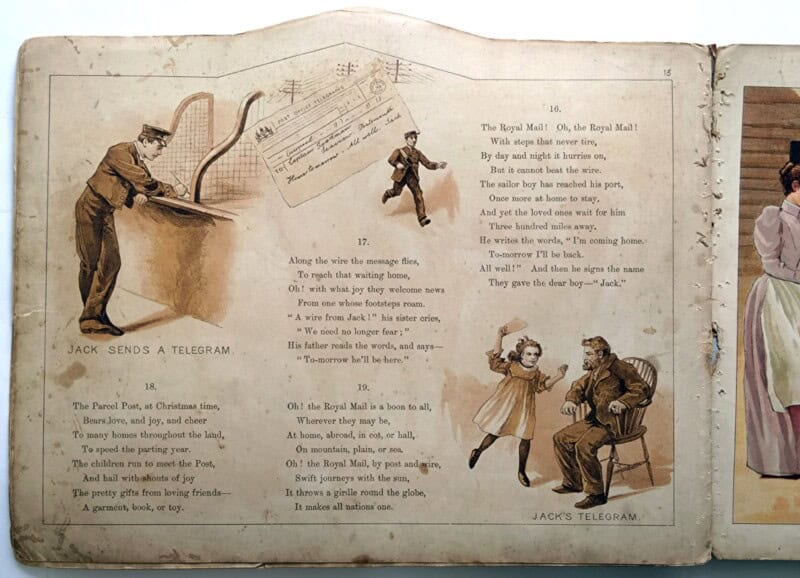 POST OFFICE TELEGRAPHS
Liverpool
TO Captain
Home tomorrow. All well. Jack
JACK SENDS A TELEGRAM.
16.
The Royal Mail! Oh, the Royal Mail!
With steps that never tire,
By day and night it hurries on,
But it cannot beat the wire.
The sailor boy has reached his port,
Once more at home to stay,
And yet the loved ones wait for him
Three hundred miles away.
He writes the words, “I'm coming home.
To-morrow I'll be back.
All well!” And then he signs the name
They gave the dear boy—“Jack.”
17.
Along the wire the message flies,
To reach that waiting home,
Oh! with what joy they welcome news
From one whose footsteps roam.
“A wire from Jack!” his sister cries,
“We need no longer fear;”
His father reads the words, and says—
“To-morrow he'll be here.”
18.
The Parcel Post, at Christmas time,
Bears love, and joy, and cheer
To many homes throughout the land,
To speed the parting year.
The children run to meet the Post,
And hail with shouts of joy
The pretty gifts from loving friends—
A garment, book, or toy.
19.
Oh! the Royal Mail is a boon to all,
Wherever they may be,
At home, abroad, in cot, or hall,
On mountain, plain, or sea.
Oh! the Royal Mail, by post and wire,
Swift journeys with the sun,
It throws a girdle round the globe,
It makes all nations one.
JACK'S TELEGRAM.